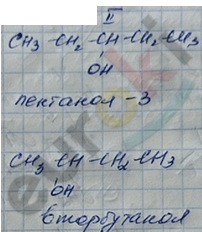 II
CH3 - CH2 - CH - CH2 - CH3
OH
пентанол - 3
CH3 - CH - CH2 - CH3
OH
вторбутанол